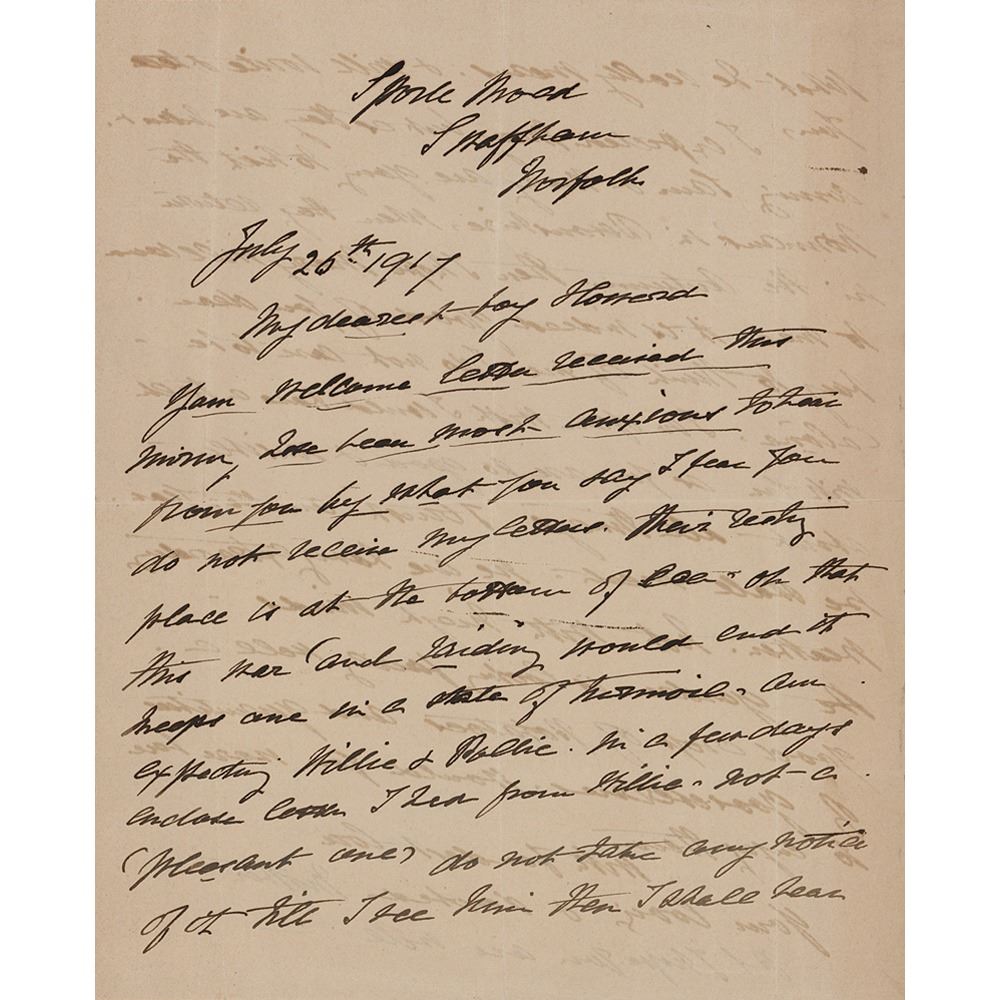 Sporle Road
Swaffham
Norfolk
July 26th 1917
My dearest boy Howard
Your welcome letter received this
morn, Ive been most anxious to hear
from you by what you say I fear you
do not receive my letters. Their resting
place is at the bottom of Sea. oh that
this war (and raiding would end it
keeps one in a state of turmoil. am
expecting Willie & Pollie. in a few days
enclose letter I had from Willie. not a
(pleasant one) do not take any notice
of it till I see him then I shall hear